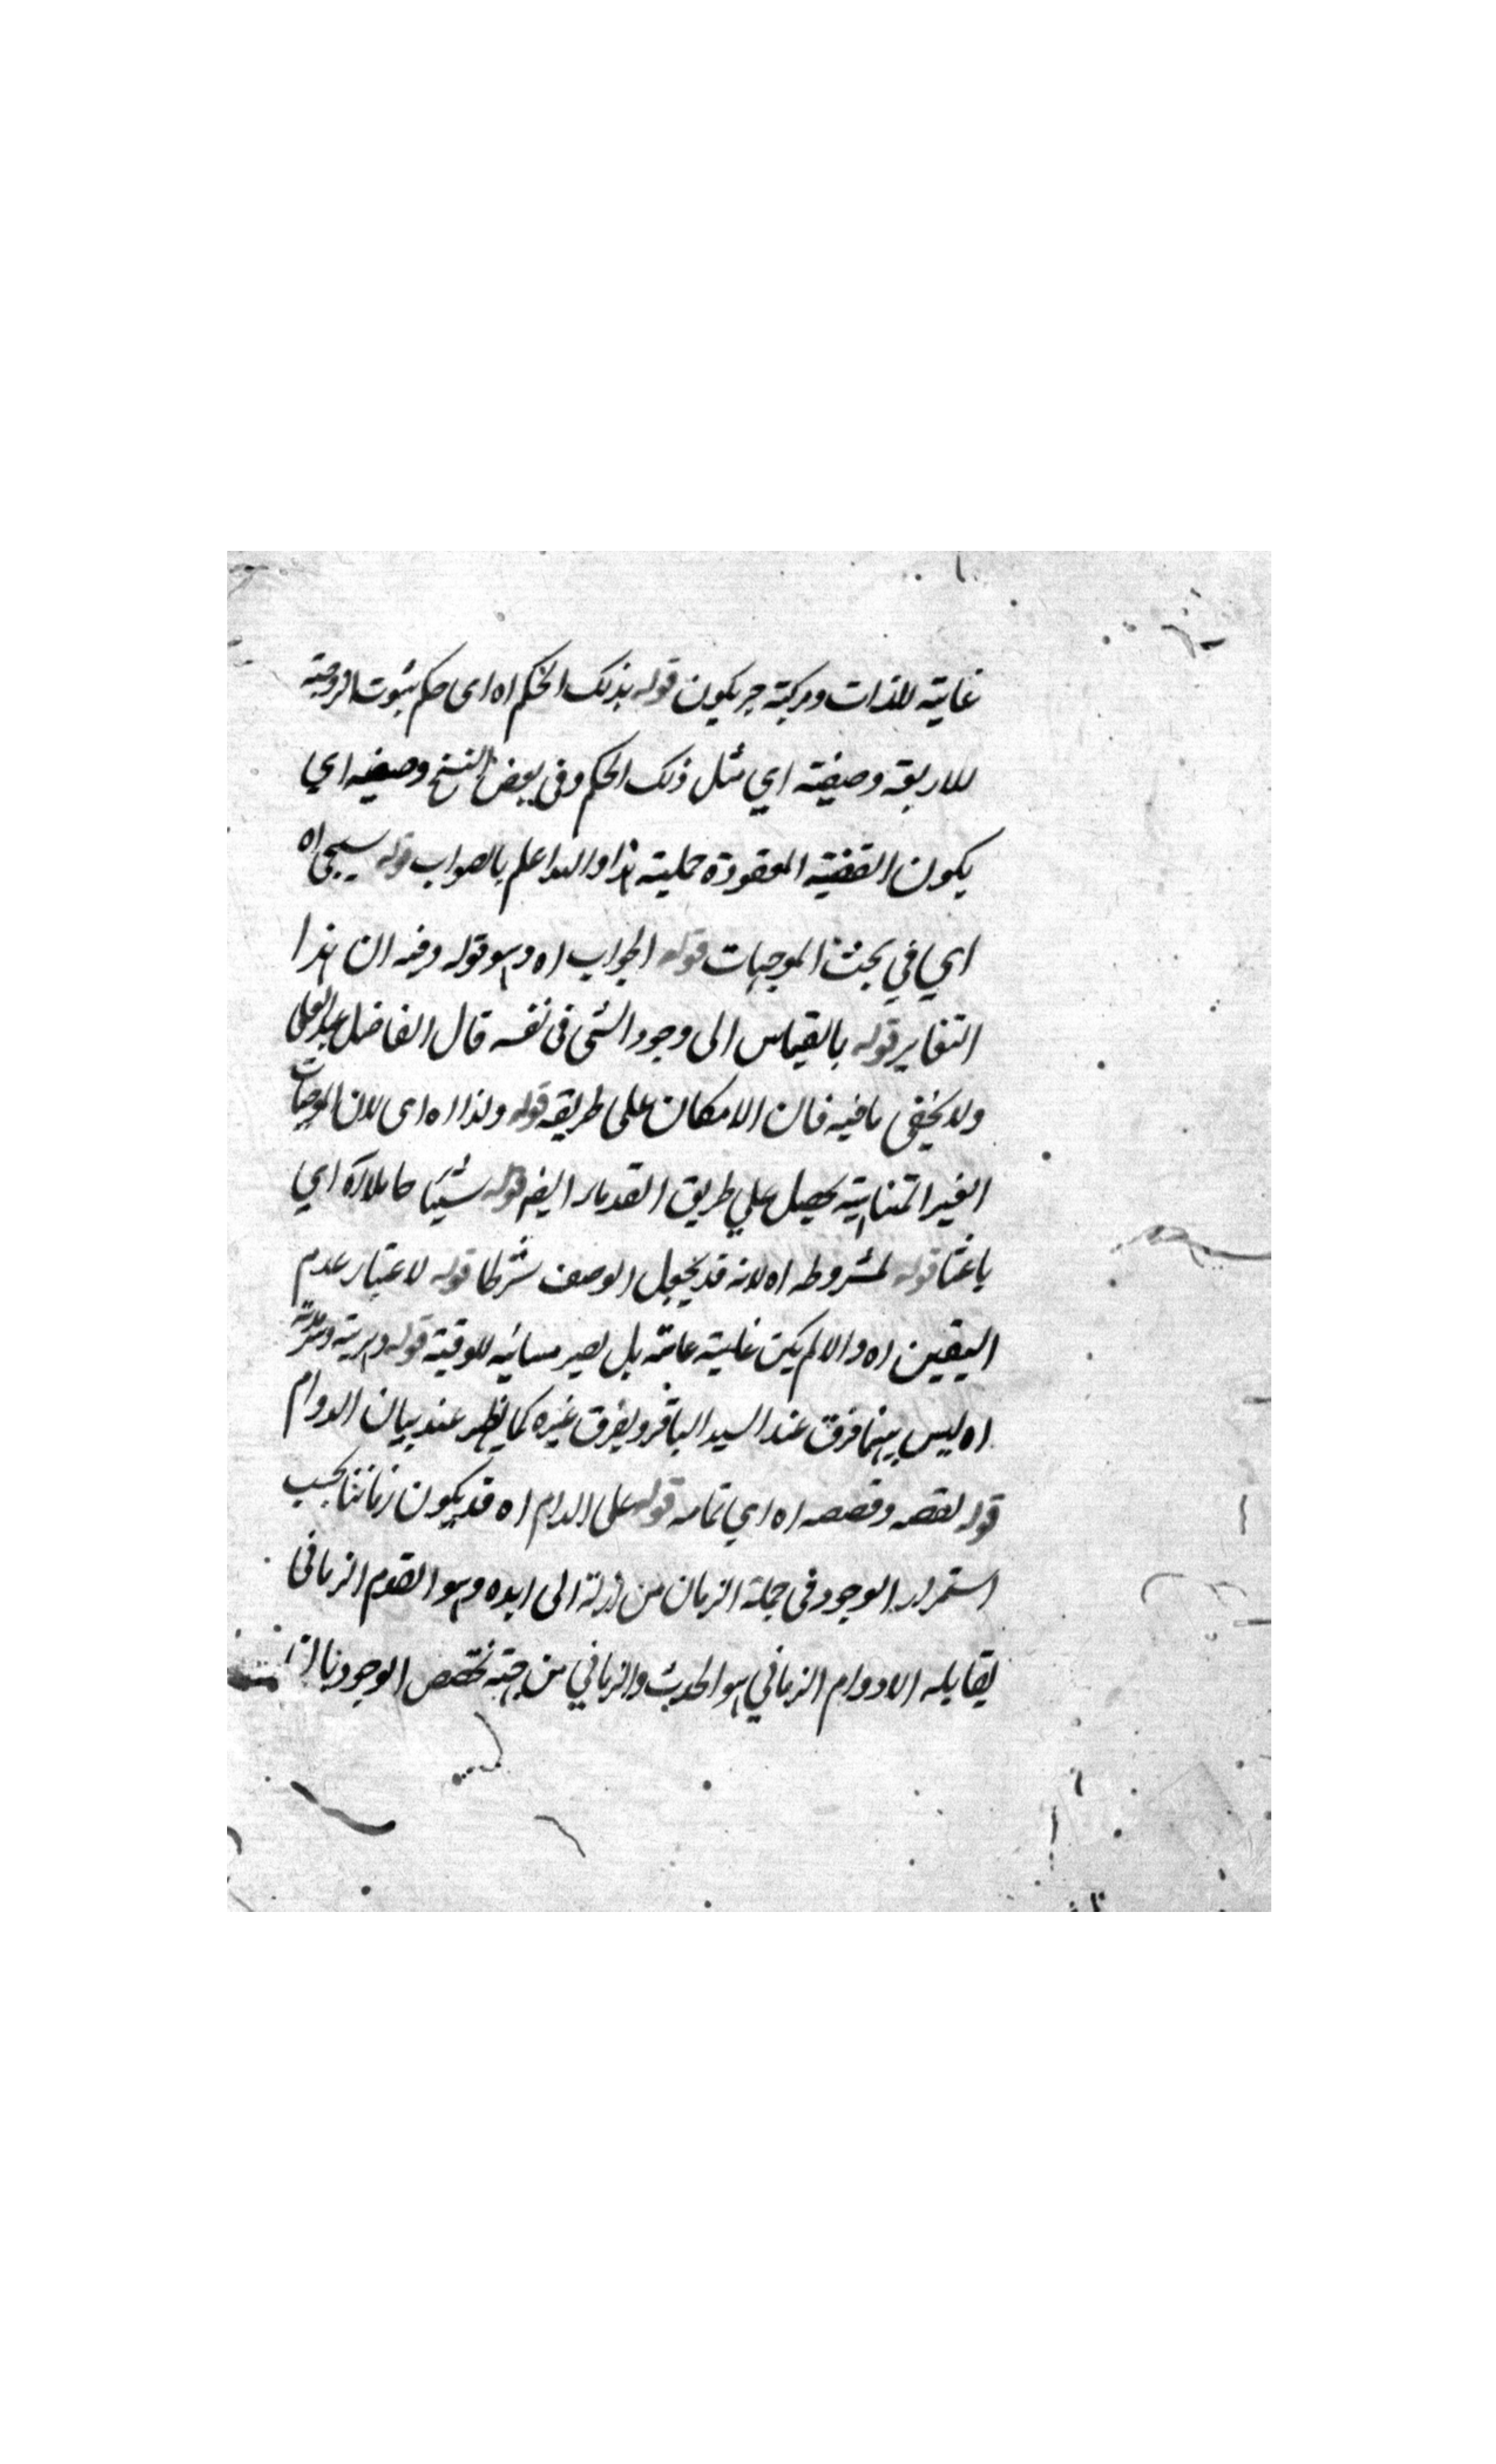 غاية للذات ومركبة ح يكون قوله بذلك الحكم اه اى حكم بثبوت الزوجية
للاربعة وصيغته اي مثل ذلك الحكم وفى بعض النسخ وصيغه اي
يكون القضية المعقودة حملية هذا والله اعلم بالصواب قوله سيجى اه
اي في بحث الموجهات قوله الجواب اه وهو قوله وفيه ان هذا
التغاير قوله بالقياس الى وجود الشى فى نفسه قال الفاضل عبد العلى
ولا يخفى ما فيه فان الامكان على طريقه قوله ولذا اه اى لان الموجهات
الغير المتناهية يحصل علي طريق القدماء ايضم قوله شيئا حاملا اه اي
باعثا قوله لمشروطه اه لانه قد يجعل الوصف شرطا قوله لاعتبار عدم
اليقين اه والا لم يكن عامة بل يصير للوقتية قوله دهرية وسرمدية
اه ليس بينهما فرق عند السيد الباقر ويفرق غيره كما يظهر عند بيان الدوام
قوله وقصصه اه اي تمامه قوله على الدام اه قد يكون زمانيا بحسب
استمرار الوجود فى جملة الزمان من ازله الى ابده وهو القدم الزمانى
يقابله الادوام الزماني هو الحدث والزماني من جهة تخصص الوجود